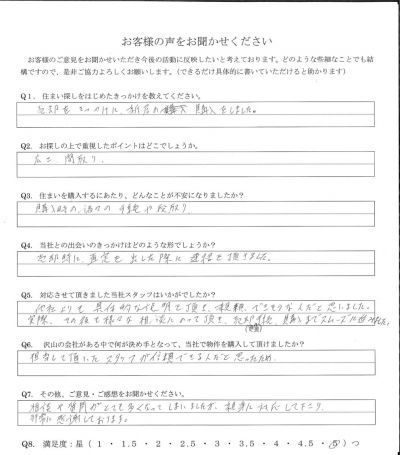 お客様の声をお聞かせください
お客様のご意見をお聞かせいただき今後の活動に反映したいと考えております。どのような些細なことでも結
構ですので、是非ご協力よろしくお願いします。（できるだけ具体的に書いていただけると助かります）
Q1. 住まい探しをはじめたきっかけを教えてください。
売却をきっかけに、新居の購入をしました。
Q2. お探しの上で重視したポイントはどこでしょうか。
広さ 間取り、
Q3. 住まいを購入するにあたり、どんなことが不安になりましたか？
購入時の諸々の手続や段取り
Q4. 当社との出会いのきっかけはどのような形でしょうか？
売却時に査定を出した際に連絡を頂きました。
Q5. 対応させて頂きました当社スタッフはいかがでしたか？
他社よりも具体的な説明を頂き、信頼できそうな人だと思いました。
実際、その後も様々な相談にのって頂き、売却後、購入までスムーズに
Q6. 沢山の会社がある中で何が決め手となって、当社で物件を購入して頂けましたか？
担当して頂いたスタッフが信頼できる人だと思ったため。
Q7. その他、ご意見・ご感想をお聞かせください。
相談や質問がとても多くなってしまいましたが、親身に対応して下さり、
非常に感謝しております。
Q8. 満足度：星（ 1 ・ 1.5 ・ 2 ・ 2.5 ・ 3 ・ 3.5 ・ 4 ・ 4.5 ・ 5 ）つ